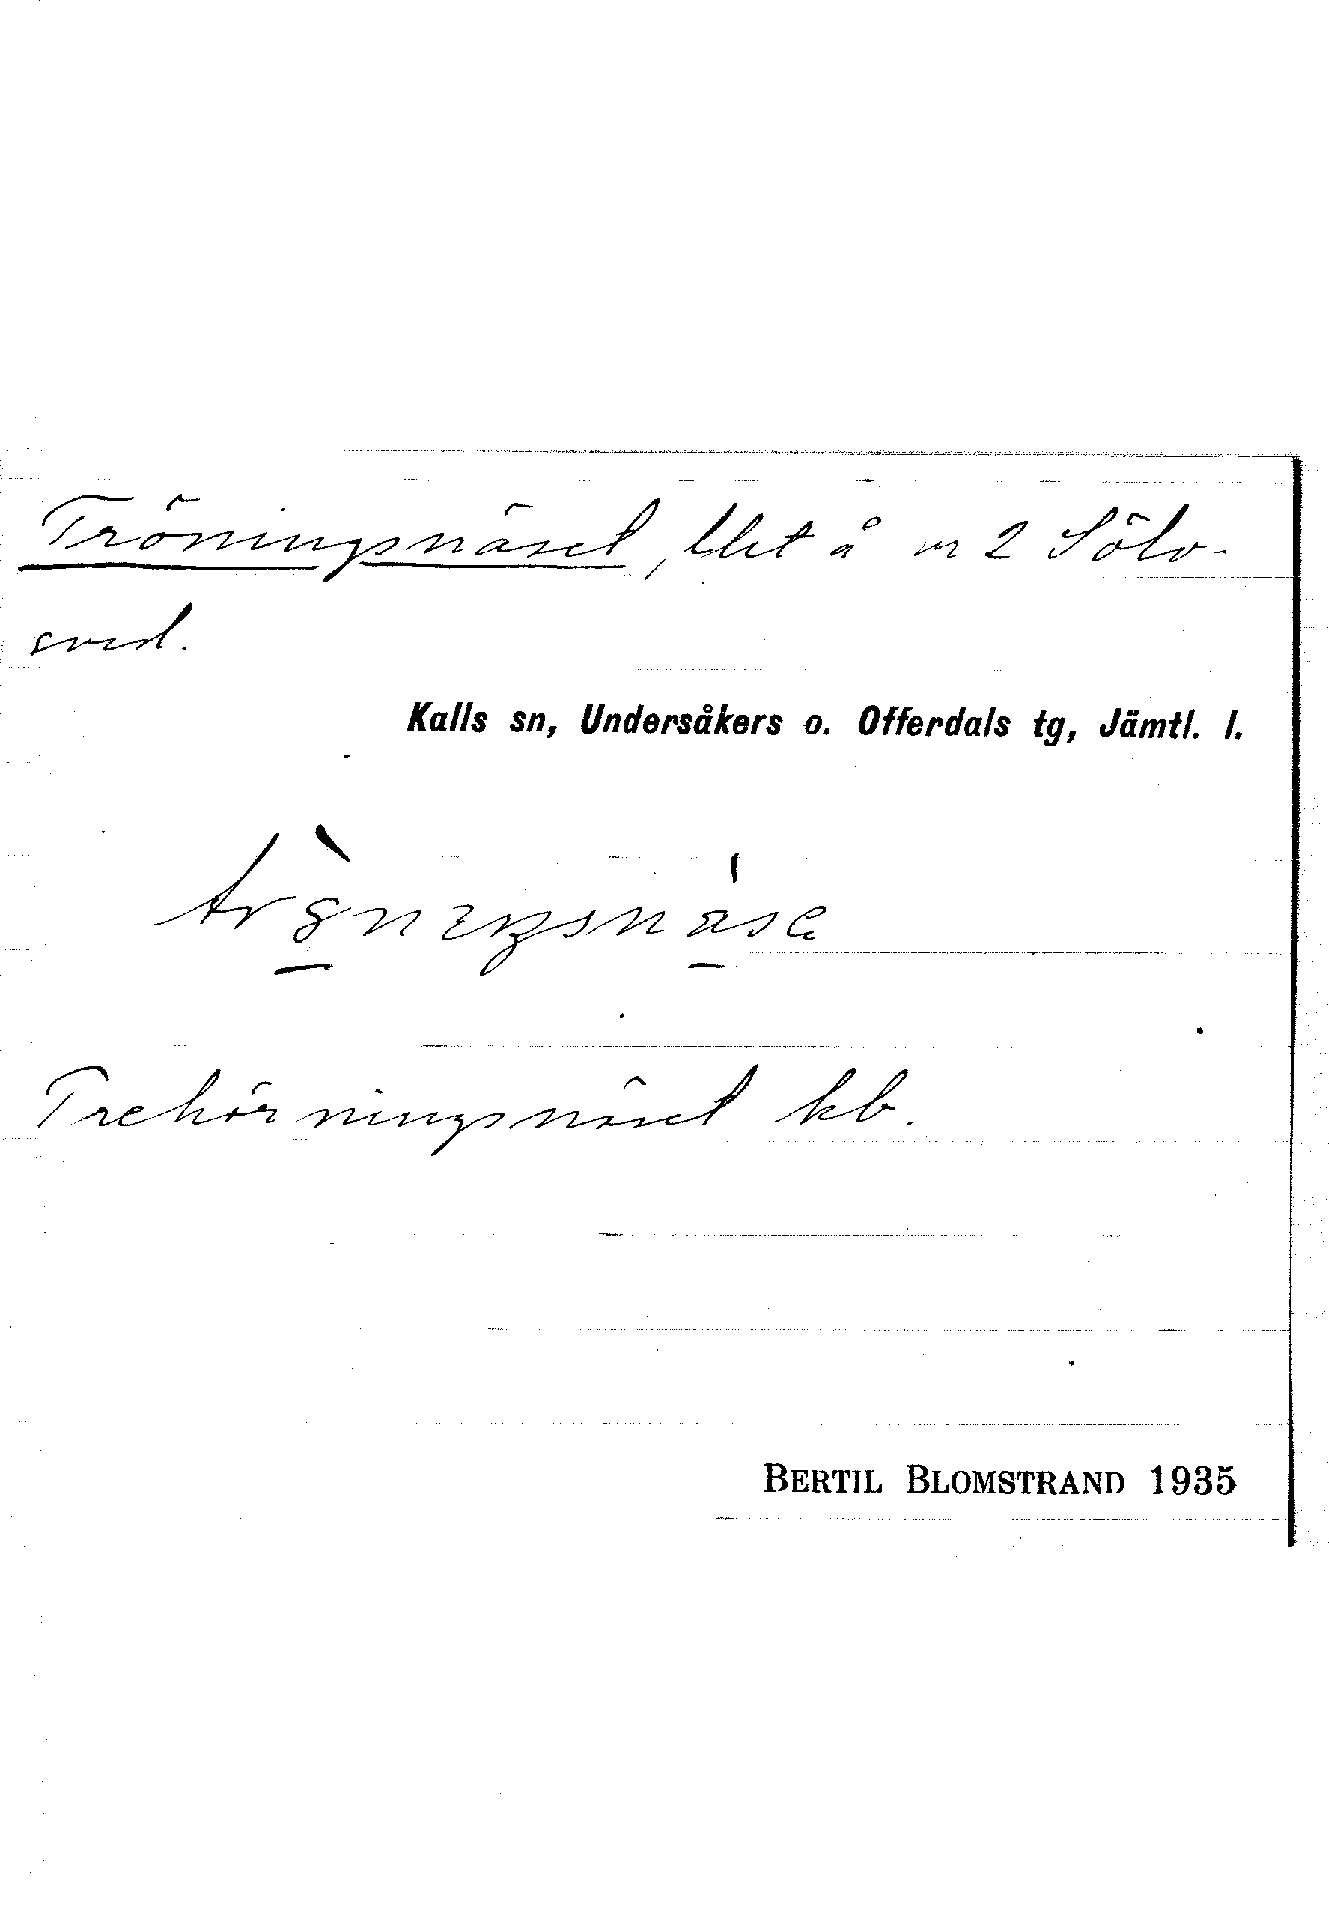 Tröningsnäset, lht å nr 2 Sölv-
sved.
Kalls sn, Undersåkers o. Offerdals tg, Jämtl. l.
Trehörningsnäset kb.
BERTIL BLOMSTRAND 1935